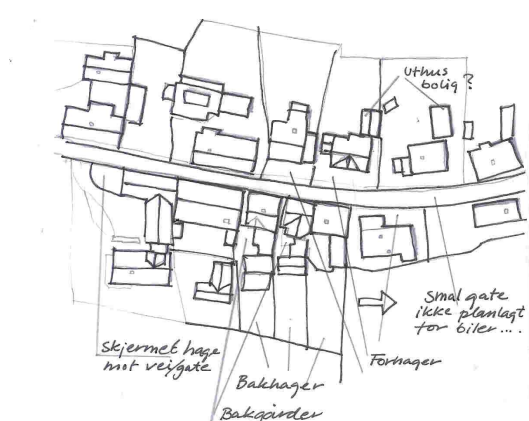 uthus
bolig?
smal gate
ikke planlagt
for biler....
skjermet hage
mot vei/gate
Forhager
Bakhager
Bakgårder